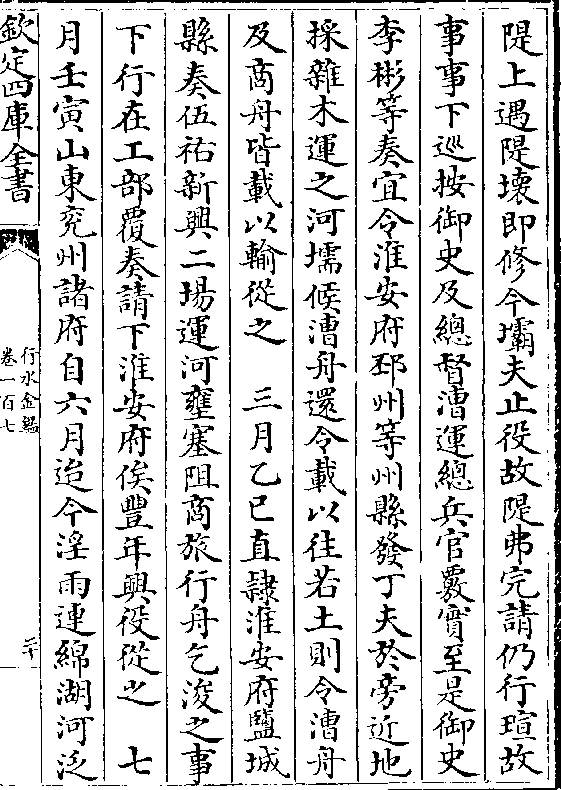 隄上遇隄壞即修今壩夫止役故隄弗完請仍行瑄故
事事下巡按御史及總督漕運總兵官覈實至是御史
李彬等奏宜令淮安府邳州等州縣發丁夫於旁近地
採雜木運之河壖候漕舟還令載以往若土則令漕舟
及商舟皆載以輸從之　三月乙巳直隸淮安府鹽城
縣奏伍祐新興二場運河壅塞阻商旅行舟乞浚之事
下行在工部覆奏請下淮安府俟豐年興役從之　七
月壬寅山東兖州諸府自六月迨今淫雨連綿湖河泛
欽定四庫全書
行水金鑑
卷一百七
二十